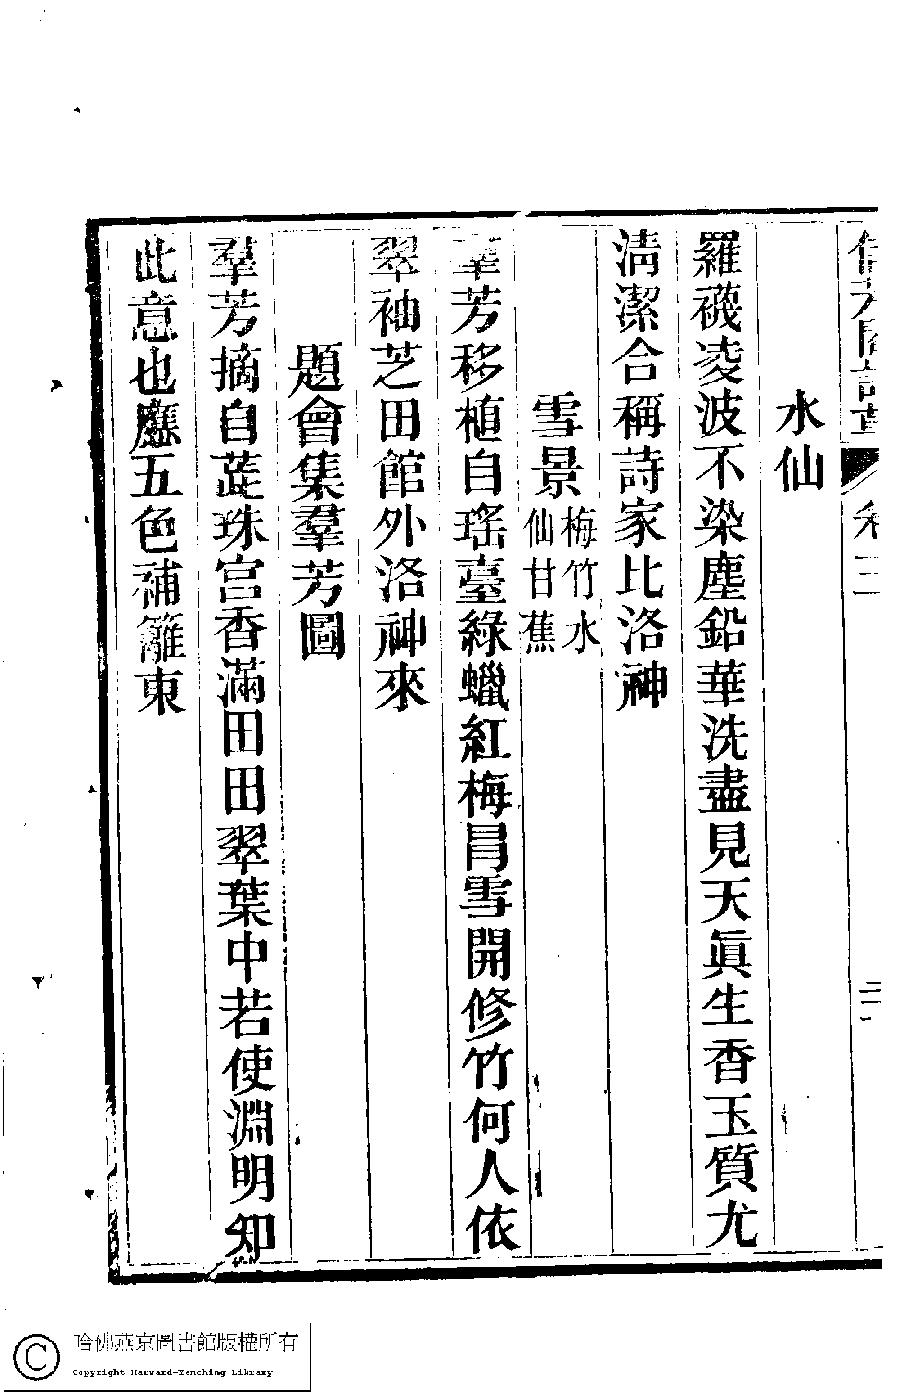 卷三
水仙
羅襪凌波不染塵鉛華洗盡見天眞生香玉質尤
淸潔合稱詩家比洛神
雪景梅竹水仙甘蕉
羣芳移植自瑤臺綠蠟紅梅冐雪開修竹何人依
翠袖芝田館外洛神來
題會集羣芳圖
羣芳摘自蕋珠宮香滿田田翠葉中若使淵明知
此意也應五色補籬東
哈佛燕京圖書館版權所有
Copyright Harvard-Yenching Library